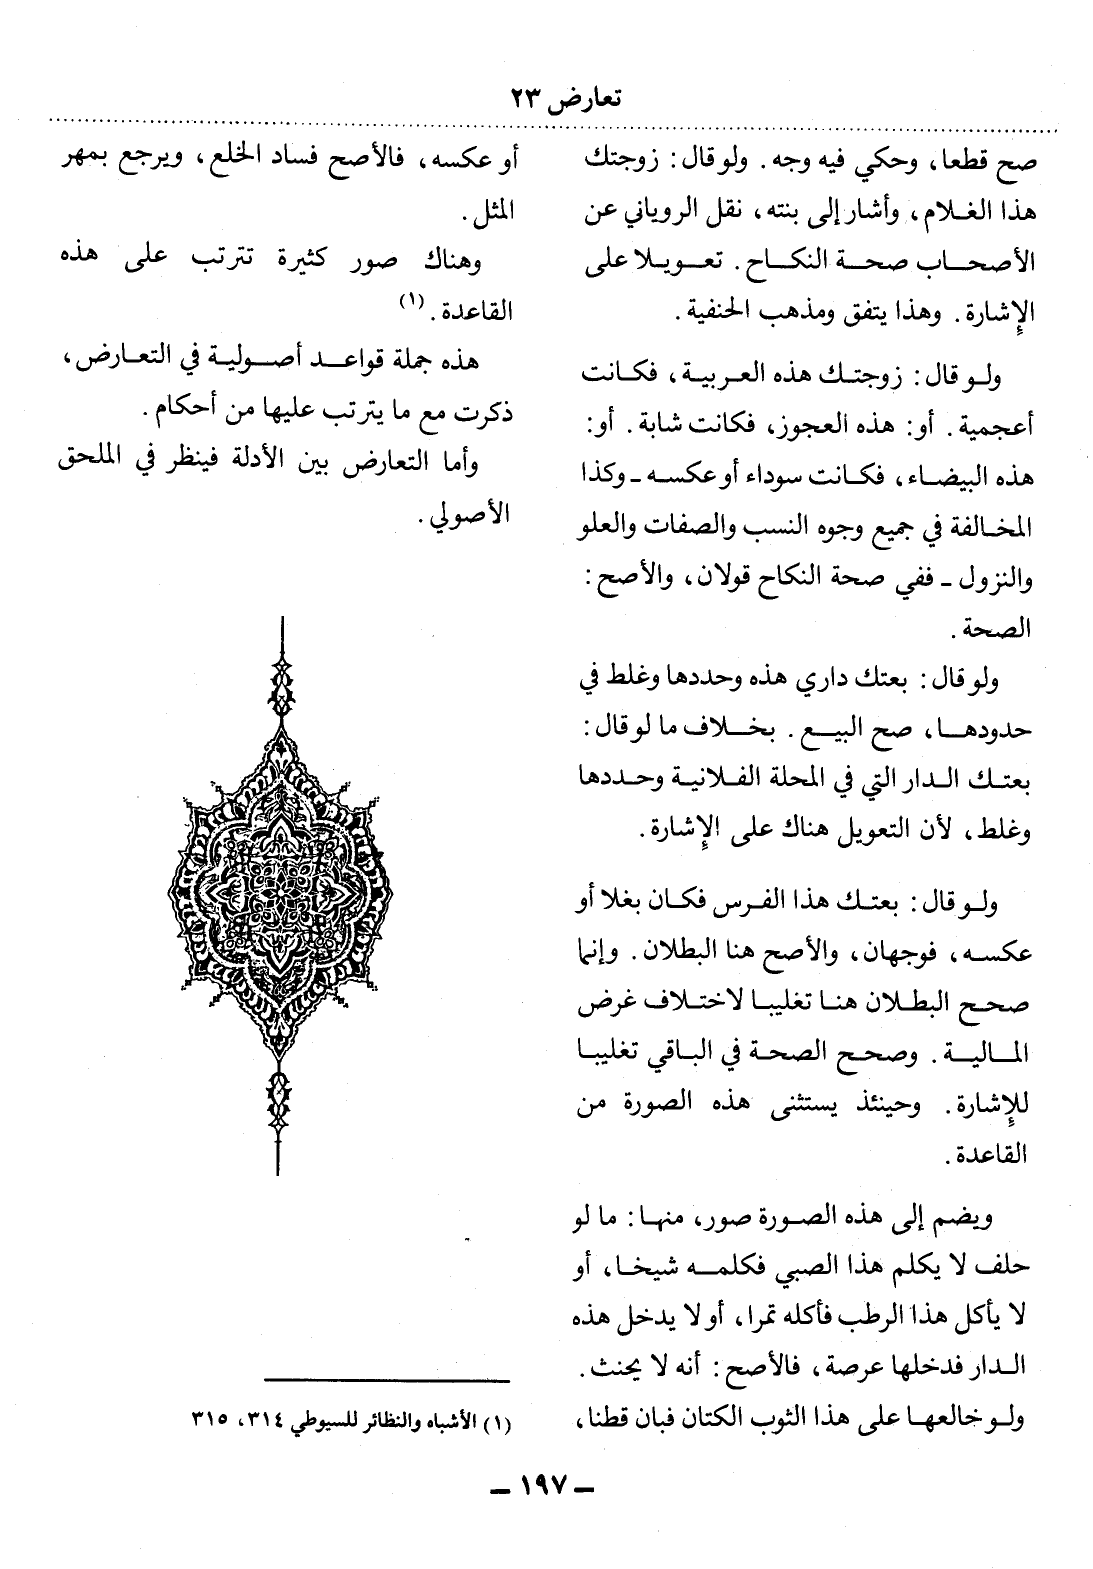 تعارض ٢٣
صح قطعا، وحكي فيه وجه. ولو قال: زوجتك
هذا الغلام، وأشار إلى بنته، نقل الروياني عن
الأصحاب صحة النكاح. تعويلا على
الإشارة. وهذا يتفق ومذهب الحنفية.
ولو قال: زوجتك هذه العربية، فكانت
أعجمية. أو: هذه العجوز، فكانت شابة. أو:
هذه البيضاء، فكانت سوداء أو عكسه ـ وكذا
المخالفة في جميع وجوه النسب والصفات والعلو
والنزول ـ ففي صحة النكاح قولان، والأصح:
الصحة.
ولو قال: بعتك داري هذه وحددها وغلط في
حدودها، صح البيع. بخلاف ما لو قال:
بعتك الدار التي في المحلة الفلانية وحددها
وغلط، لأن التعويل هناك على الإشارة.
ولو قال: بعتك هذا الفرس فكان بغلا أو
عكسه، فوجهان، والأصح هنا البطلان. وإنما
صحح البطلان هنا تغليبا لاختلاف غرض
المالية. وصحح الصحة في الباقي تغليبا
للإشارة. وحينئذ يستثنى هذه الصورة من
القاعدة.
ويضم إلى هذه الصورة صور، منها: ما لو
حلف لا يكلم هذا الصبي فكلمه شيخا، أو
لا يأكل هذا الرطب فأكله تمرا، أو لا يدخل هذه
الدار فدخلها عرصة، فالأصح: أنه لا يحنث.
ولو خالعها على هذا الثوب الكتان فبان قطنا،
أو عكسه، فالأصح فساد الخلع، ويرجع بمهر
المثل.
وهناك صور كثيرة تترتب على هذه
القاعدة.(١)
هذه جملة قواعد أصولية في التعارض،
ذكرت مع ما يترتب عليها من أحكام.
وأما التعارض بين الأدلة فينظر في الملحق
الأصولي.
(١) الأشباه والنظائر للسيوطي ٣١٤، ٣١٥
ـ ١٩٧ ـ